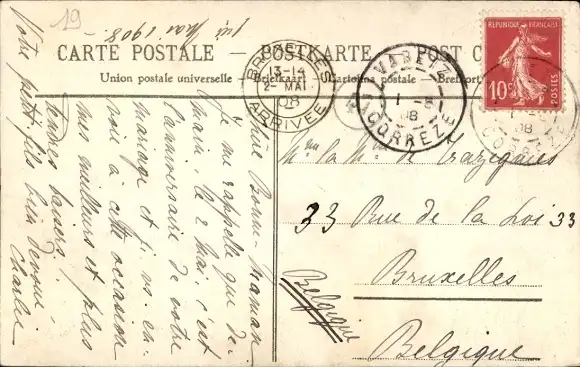 19
1er Mai 1908 -
CARTE POSTALE — POSTKARTE — POST C
Union postale universelle — Briefkaart — Cartolina postale — Brefkort
BRUXELLES
13-14
2- MAI
08
ARRIVEE
CORREZE
1 -5
08
REPUBLIQUE FRANÇAISE
10c
POSTES
08
CORREZE
Chère Bonne-Maman
Je me rappelle que de-
main le 2 mai c'est
l'anniversaire de votre
mariage et je vs en-
voie à cette occasion
mes meilleurs et plus
tendres baisers,
Votre petit fils bien dévoué
Charles
Mme la Mise de Trazegnies
33 Rue de la Loi 33
Bruxelles
Belgique
Belgique